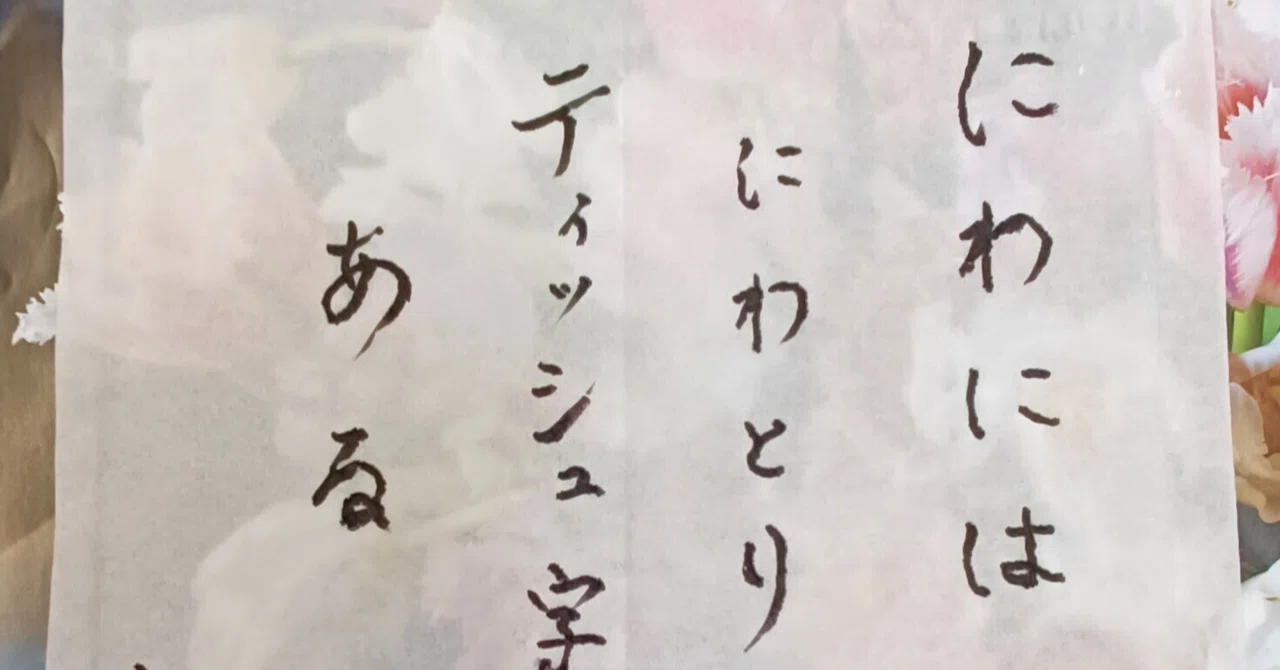 にわには
にわとり
ティッシュ
ある